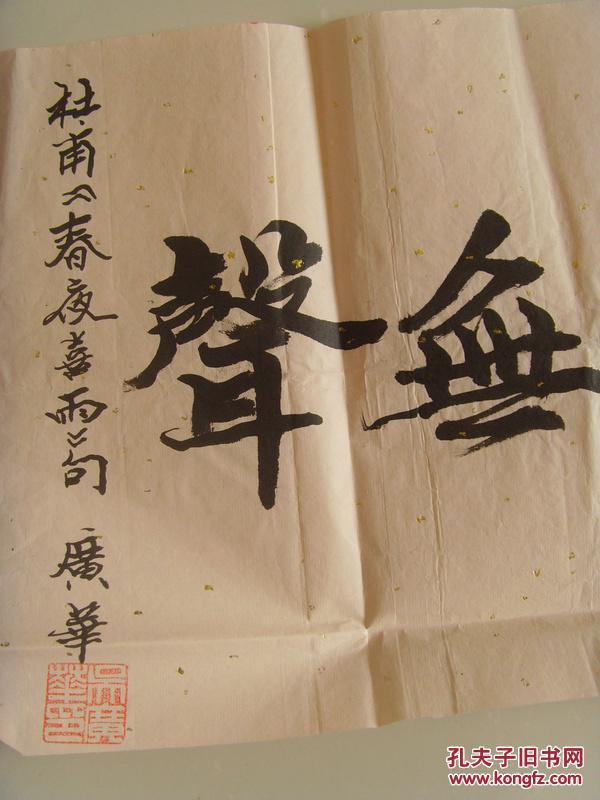 無聲
杜甫《春夜喜雨》句 廣華
孔夫子旧书网
www.kongfz.com